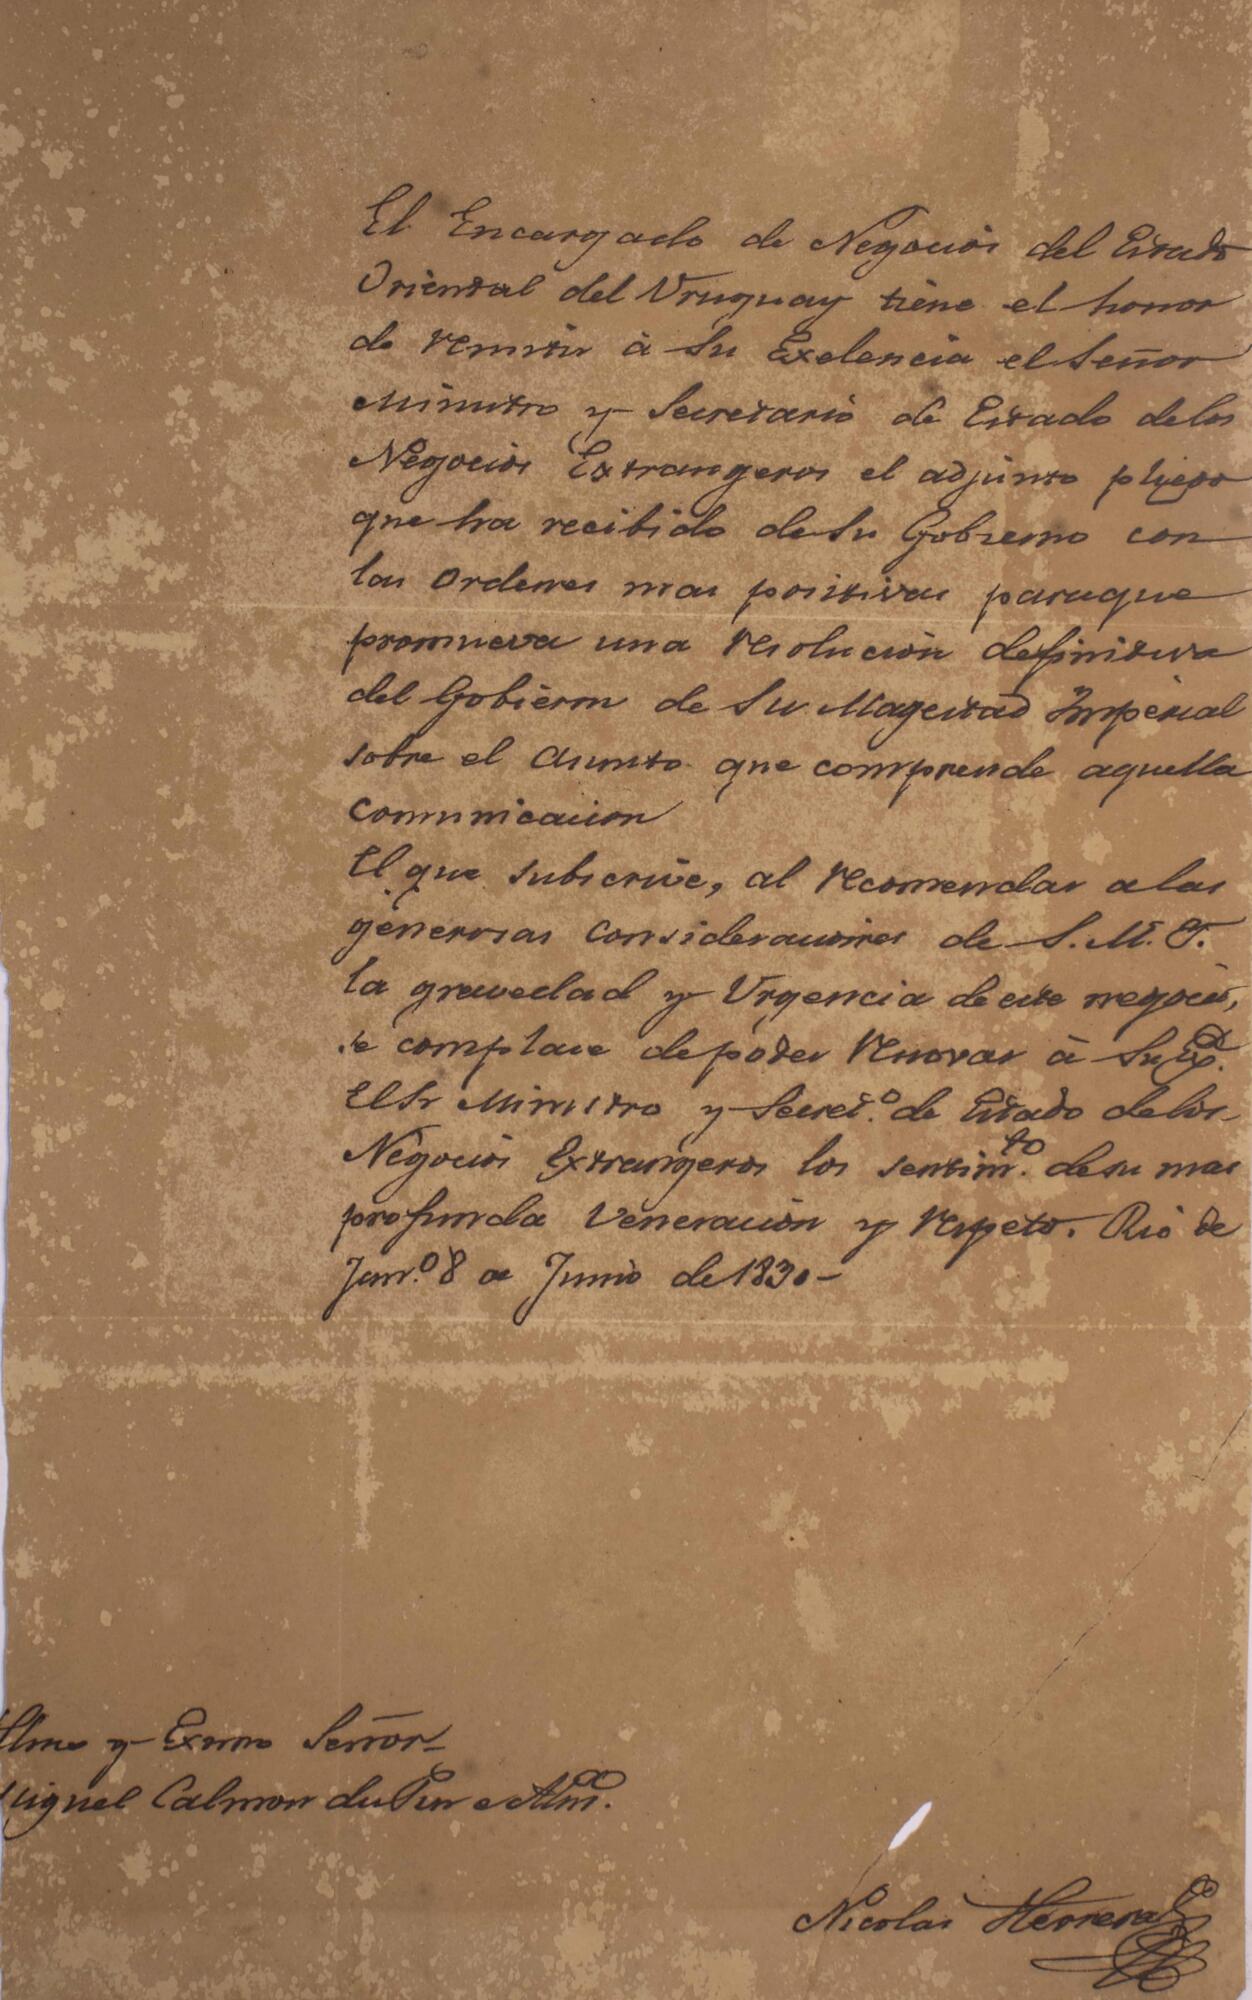 El Encargado de Negocios del Estado
Oriental del Uruguay tiene el honor
de remitir à Su Exelencia el Señor
Ministro y Secretario de Estado delos
Negocios Extrangeros el adjunto pliego
que ha recibido de Su Gobierno con
las Ordenes mas positivas paraque
promueva una resolucion definitiva
del Gobierno de Su Magestad Imperial
sobre el asunto que comprende aquella
comunicacion
El que subscrive, al recomendar a las
generosas consideraciones de S. M. I.
la gravedad y Urgencia de este negocio,
se complace de poder renovar à Su Exª.
El Sr Ministro y Secretº. de Estado delos
Negocios Extrangeros los sentimᵗᵒ. de su mas
profunda Veneracion y respeto. Rio de
Janrº. 8 de Junio de 1830-
Ilmo y Exmo Señor
Miguel Calmon du Pin e Almᵈᵃ.
Nicolas Herrera